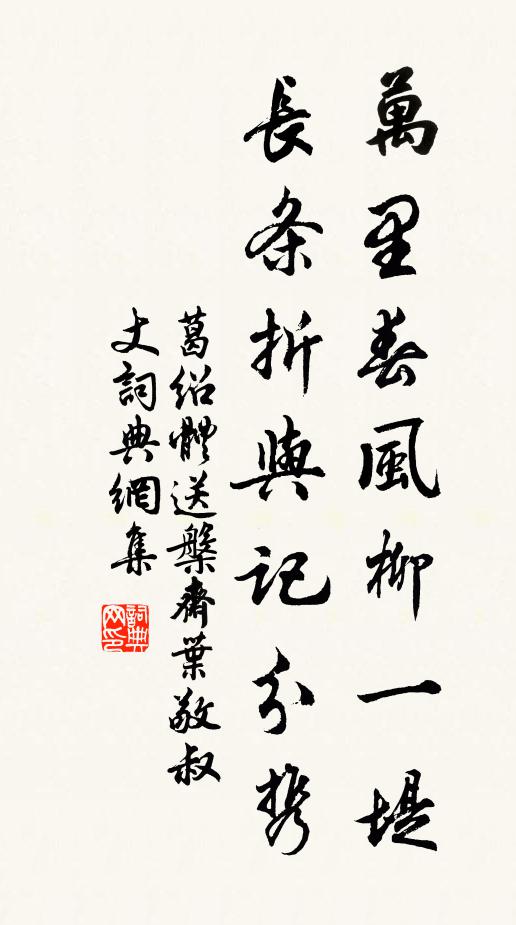 萬里春風柳一堤
長条折與記分携
葛紹體送槃齋葉敬叔
丈詞典網集
詞典网印